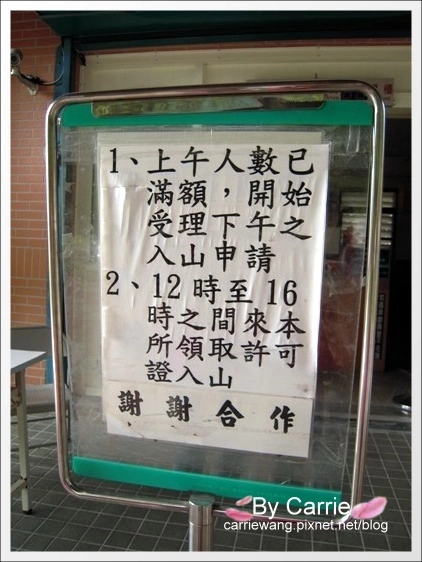 1、上午人數已
滿額，開始
受理下午之
入山申請
2、12時至16
時之間來本
所領取許可
證入山
謝謝合作
By Carrie
carriewang.pixnet.net/blog